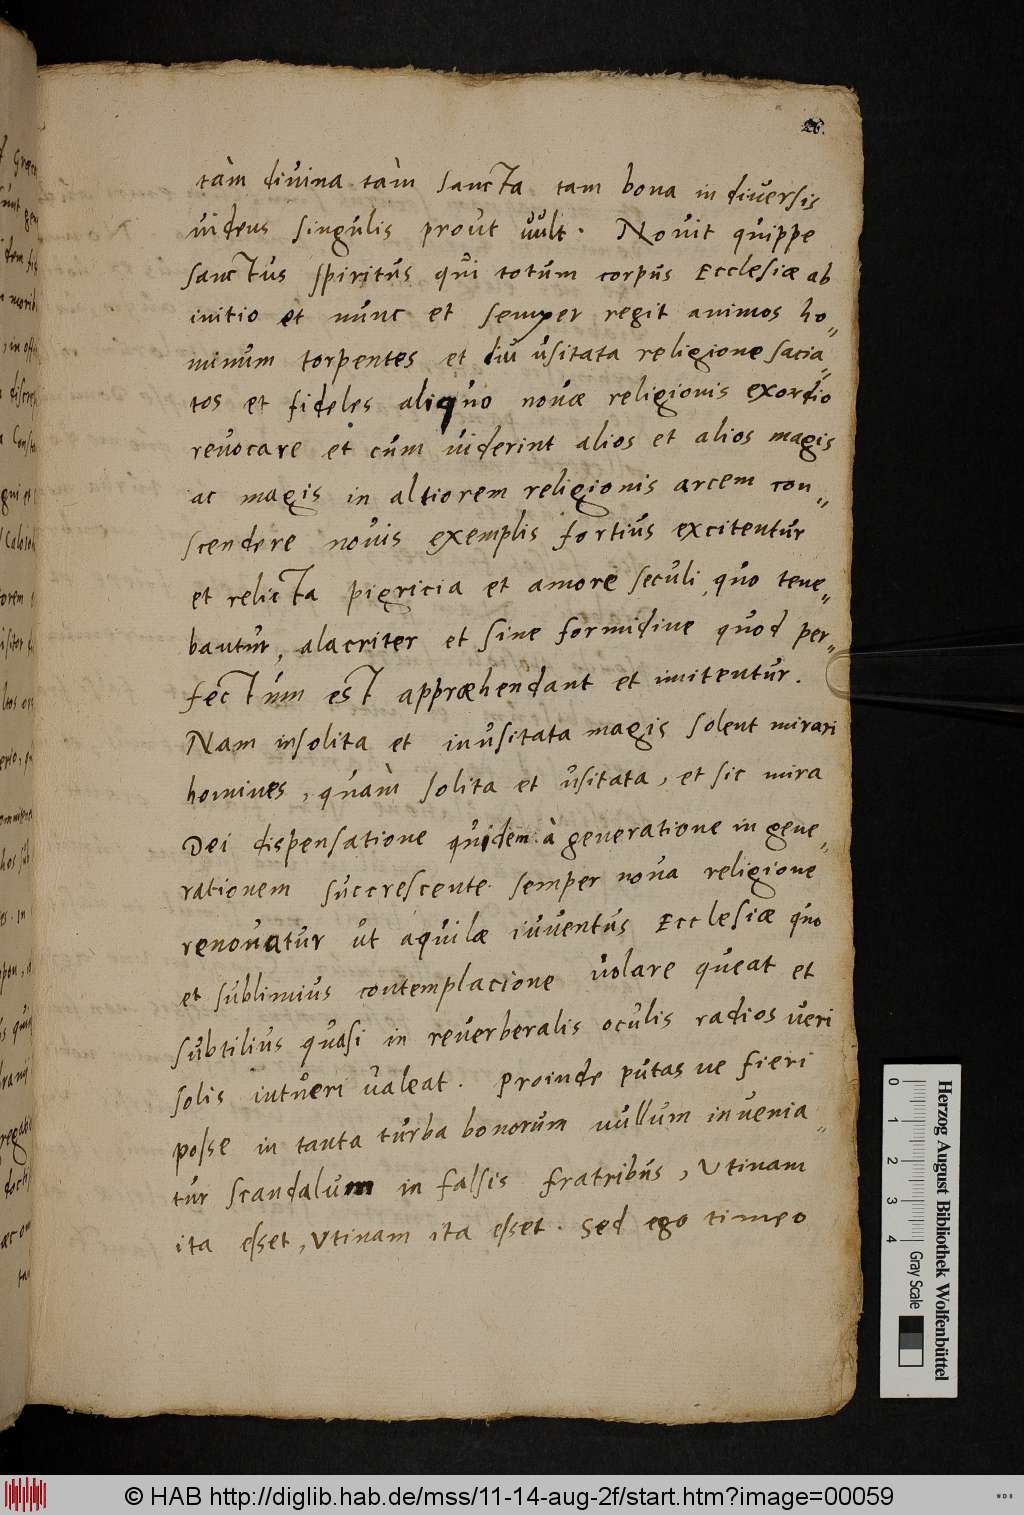 26.
tàm diuina tàm sancta tam bona in diuersis
uidens singulis prout uult. Nouit quippe
sanctus spiritus qui totum corpus Ecclesiæ ab
initio et nunc et semper regit animos ho„
minum torpentes et diu usitata religione sacia„
tos et fideles aliquo nouæ religionis exordio
reuocare et cùm uiderint alios et alios magis
ac magis in altiorem religionis arcem con„
scendere nouis exemplis fortius excitentur
et relicta pigricia et amore seculi, quo tene„
bantur, alacriter et sine formidine quod per„
fectùm est appræhendant et imitentur.
Nam insolita et inusitata magis solent mirari
homines, quàm solita et usitata, et sic mira
Dei dispensatione quidem à generatione in gene„
rationem succrescente semper noua religione
renouatur ut aquilæ iuuentus Ecclesiæ quo
et sublimius contemplacione uolare queat et
subtilius quasi in reuerberalis oculis radios ueri
solis intueri ualeat. Proinde putas ne fieri
posse in tanta turba bonorum nullum inuenia„
tur scandalum in falsis fratribus, Utinam
ita esset, Utinam ita esset. Sed ego timeo
0 1 2 3 4 Gray Scale
Herzog August Bibliothek Wolfenbüttel
© HAB http://diglib.hab.de/mss/11-14-aug-2f/start.htm?image=00059